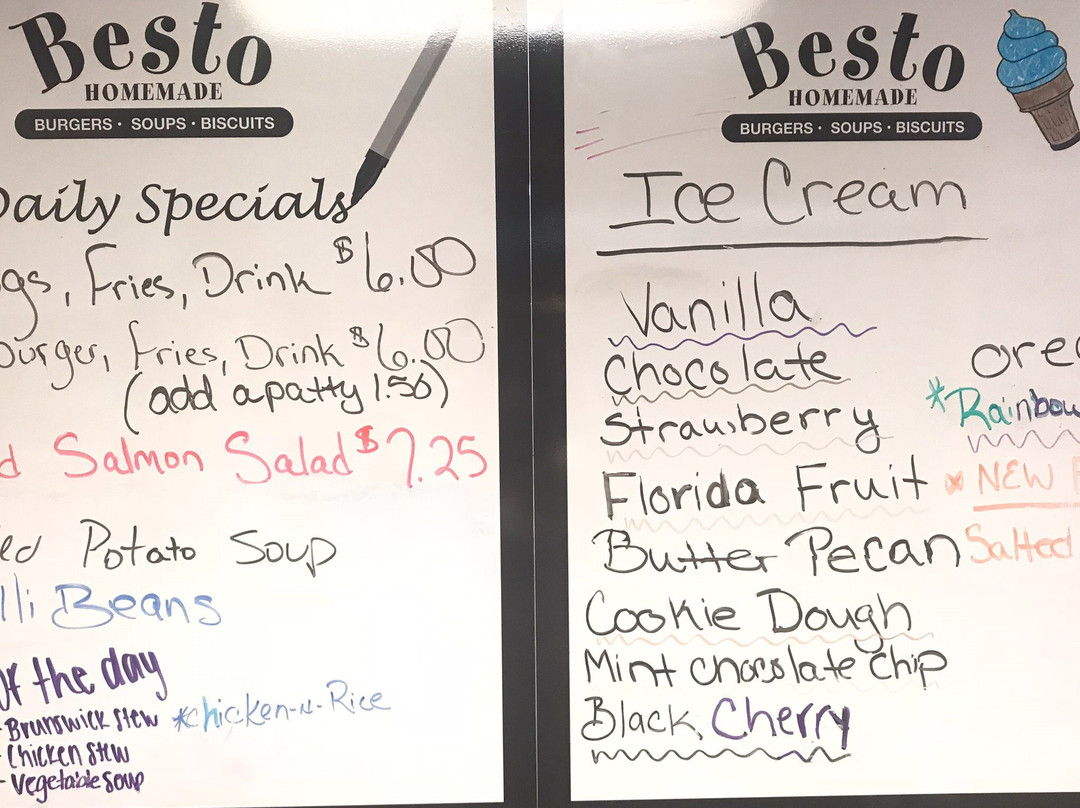 Besto
HOMEMADE
BURGERS · SOUPS · BISCUITS
Daily Specials
gs, Fries, Drink $6.00
burger, Fries, Drink $6.00
(add a patty 1.50)
d Salmon Salad $7.25
ed Potato Soup
lli Beans
of the day
-Brunswick Stew *chicken-n-Rice
-Chicken Stew
-Vegetable Soup
Besto
HOMEMADE
BURGERS · SOUPS · BISCUITS
Ice Cream
Vanilla
Chocolate
Strawberry
Florida Fruit
Butter Pecan
Cookie Dough
Mint chocolate chip
Black Cherry
Oreo
*Rainbow
*NEW F
Salted